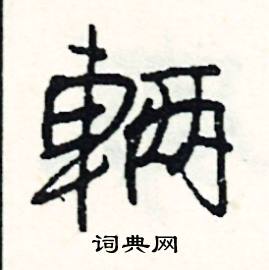 輛
词典网